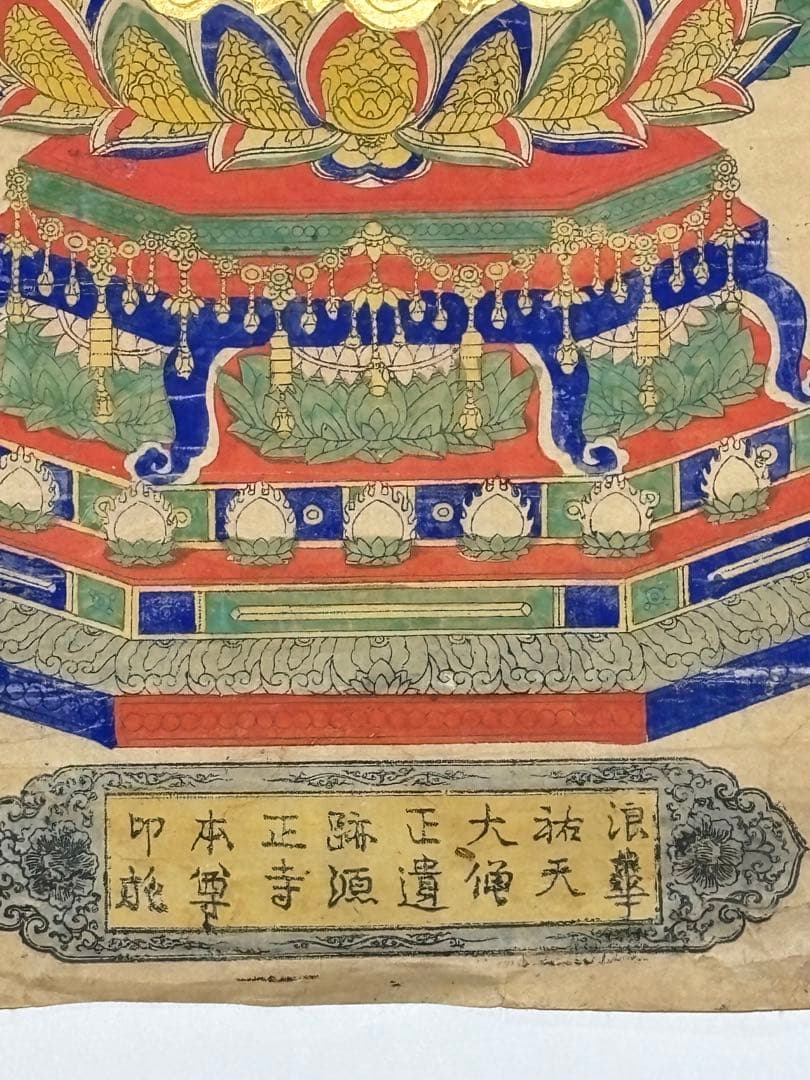 浪華
祐天
大僧
正遺
跡源
正寺
本尊
印施